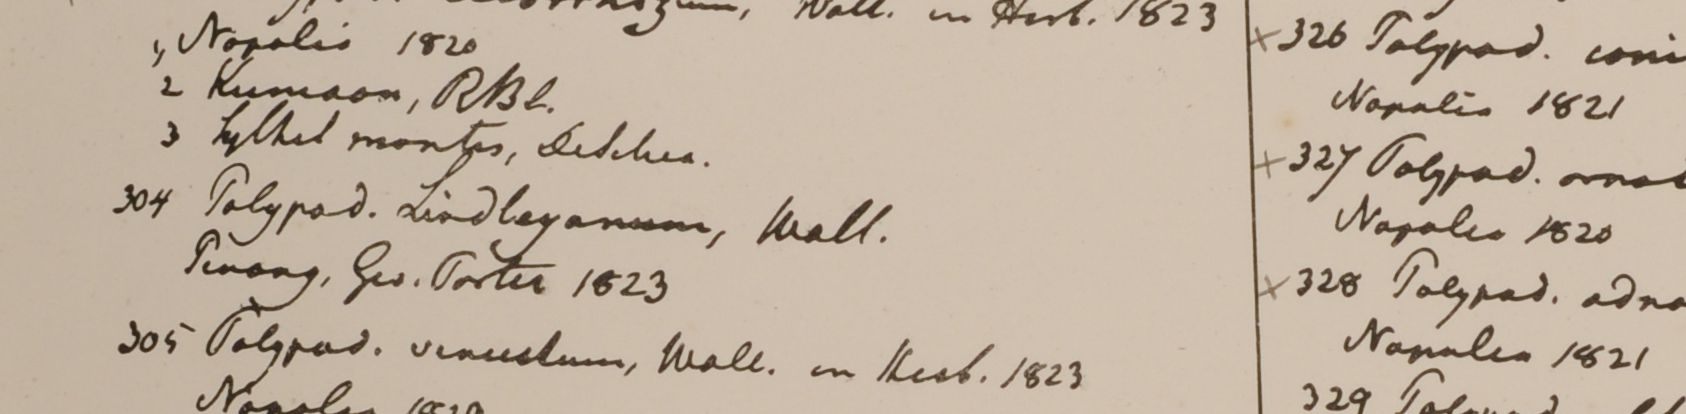 Wall. in Herb. 1823
1, Napalia 1820
2 Kumaon, RBl.
3 Sylhet montes, DeSilva.
304 Polypod. Lindleyanum, Wall.
Penang, Geo. Porter 1823
305 Polypod. venustum, Wall. in Herb. 1823
Napalia 1820
×326 Polypod.
Napalia 1821
×327 Polypod.
Napalia 1820
×328 Polypod. adna
Napalia 1821
329 Polypod.